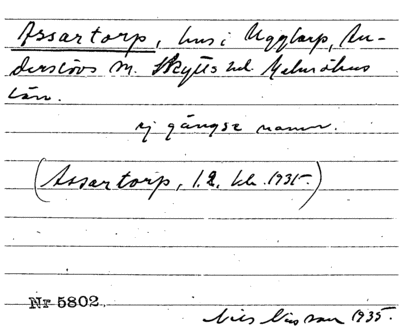 Assartorp, hus i Ugglarp, An-
derslövs sn. Skytts hd Malmöhus
län.
ej gängse namn.
(Assartorp, 1.2. kk. 1935.)
Nr 5802
Nils Nilsson 1935.